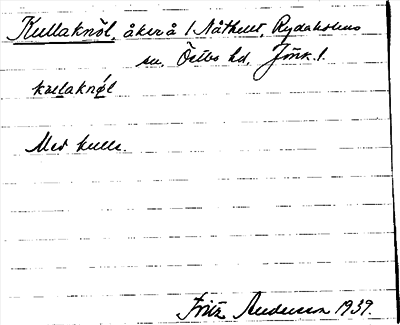 Kullaknöl, åker å 1 Nåthult, Rydaholms
sn, Östbo hd, Jönk. l.
kullaknøl
Med kulle.
Fritz Anderson 1939.